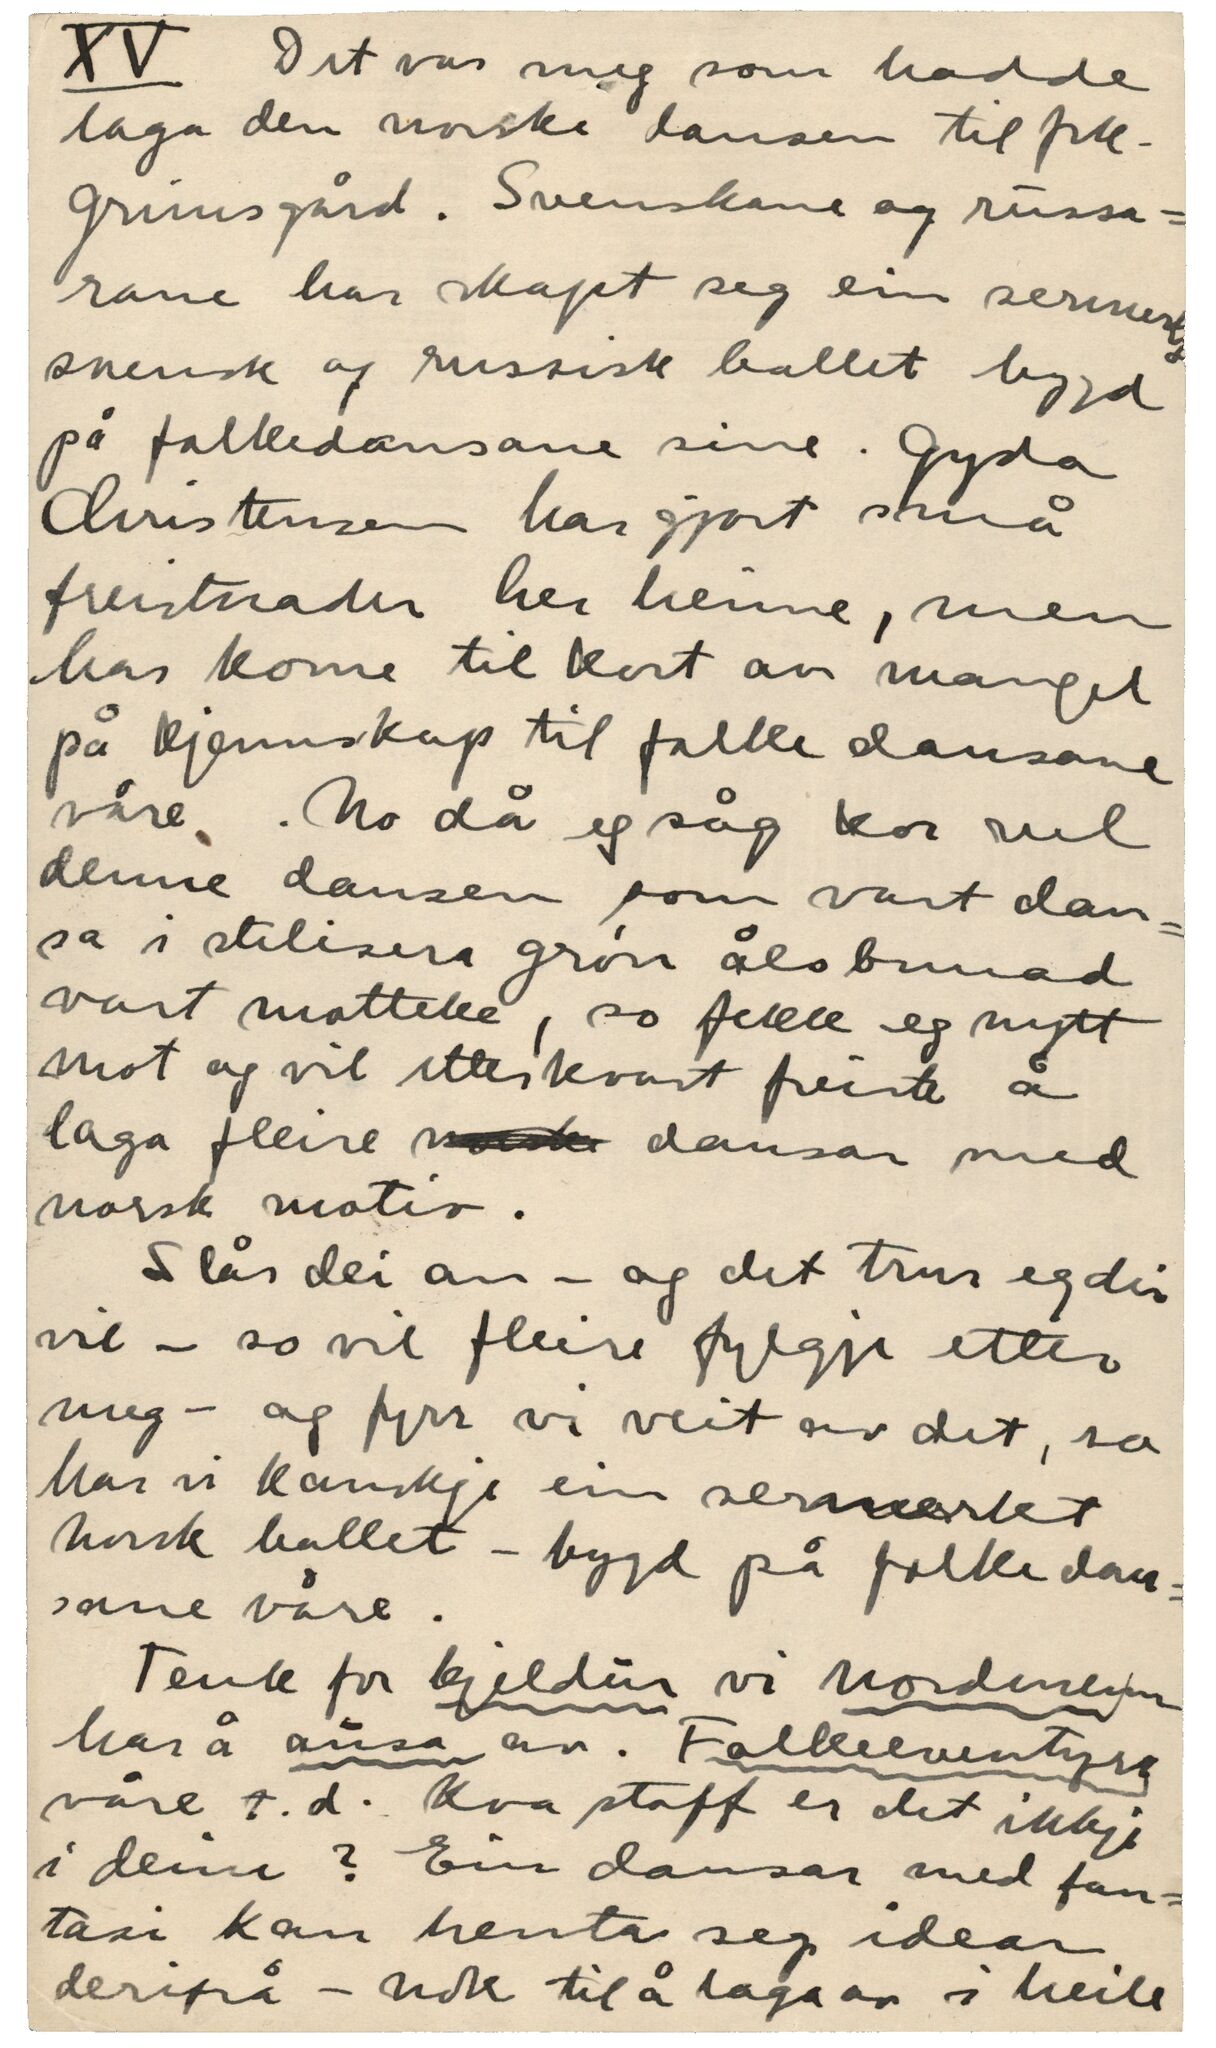 XV Det var meg som hadde
laga den norske dansen til frk.
Grimsgård. Svenskane og russa=
rane har skapt seg ein sermerkt
svensk og russisk ballet bygd
på folkedansane sine. Gyda
Christensen har gjort små
freistnader her heime, men
har kome til kort av mangel
på kjennskap til folkedansane
våre. No då eg såg kor vel
denne dansen som vart dan=
sa i stilisera grøn ålsbunad
vart motteke, so fekk eg nytt
mot og vil etterkvart freiste å
laga fleire norske dansar med
norsk motiv.
Slår dei an – og det trur eg dei
vil – so vil fleire fylgje etter
meg – og fyrr vi veit av det, so
har vi kanskje ein sermerket
norsk ballet – bygd på folkedan=
sane våre.
Tenk for kjeldur vi nordmenn
har å ausa av. Folkeeventyra
våre t.d. Kva stoff er det ikkje
i deim? Ein dansar med fan=
tasi kan henta seg idear
derifrå – nok til å laga av i heile